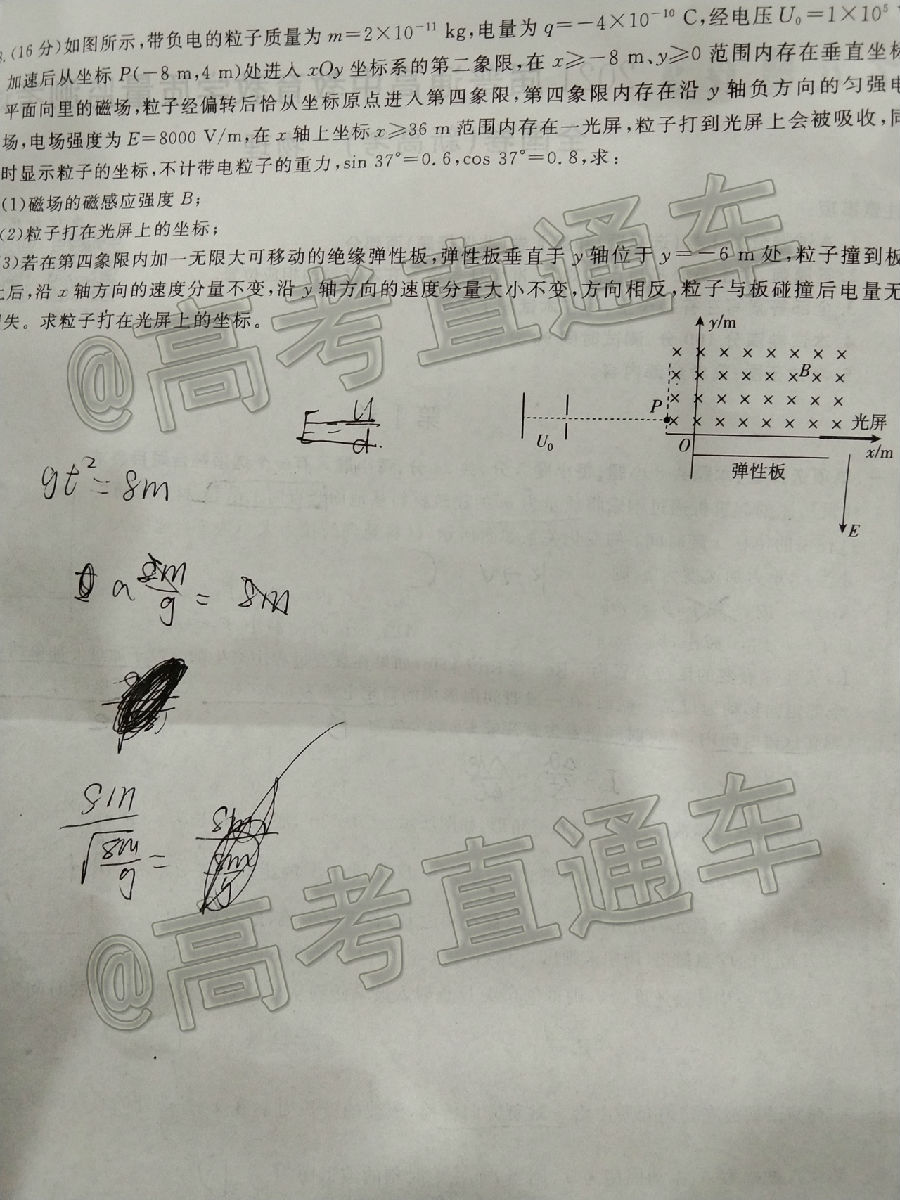 .(16分)如图所示,带负电的粒子质量为m=2×10⁻¹¹ kg,电量为q=-4×10⁻¹⁰ C,经电压U₀=1×10⁵
加速后从坐标P(-8 m,4 m)处进入xOy坐标系的第二象限,在x≥-8 m、y≥0范围内存在垂直坐标
平面向里的磁场,粒子经偏转后恰从坐标原点进入第四象限,第四象限内存在沿y轴负方向的匀强电
场,电场强度为E=8000 V/m,在x轴上坐标x≥36 m范围内存在一光屏,粒子打到光屏上会被吸收,同
时显示粒子的坐标,不计带电粒子的重力,sin 37°=0.6,cos 37°=0.8,求:
(1)磁场的磁感应强度B;
(2)粒子打在光屏上的坐标;
(3)若在第四象限内加一无限大可移动的绝缘弹性板,弹性板垂直于y轴位于y=-6 m处,粒子撞到板
上后,沿x轴方向的速度分量不变,沿y轴方向的速度分量大小不变,方向相反,粒子与板碰撞后电量无
损失。求粒子打在光屏上的坐标。
y/m
B
P
U₀
O
光屏
x/m
弹性板
E
E=U/d
gt²=8m
@高考直通车
@高考直通车